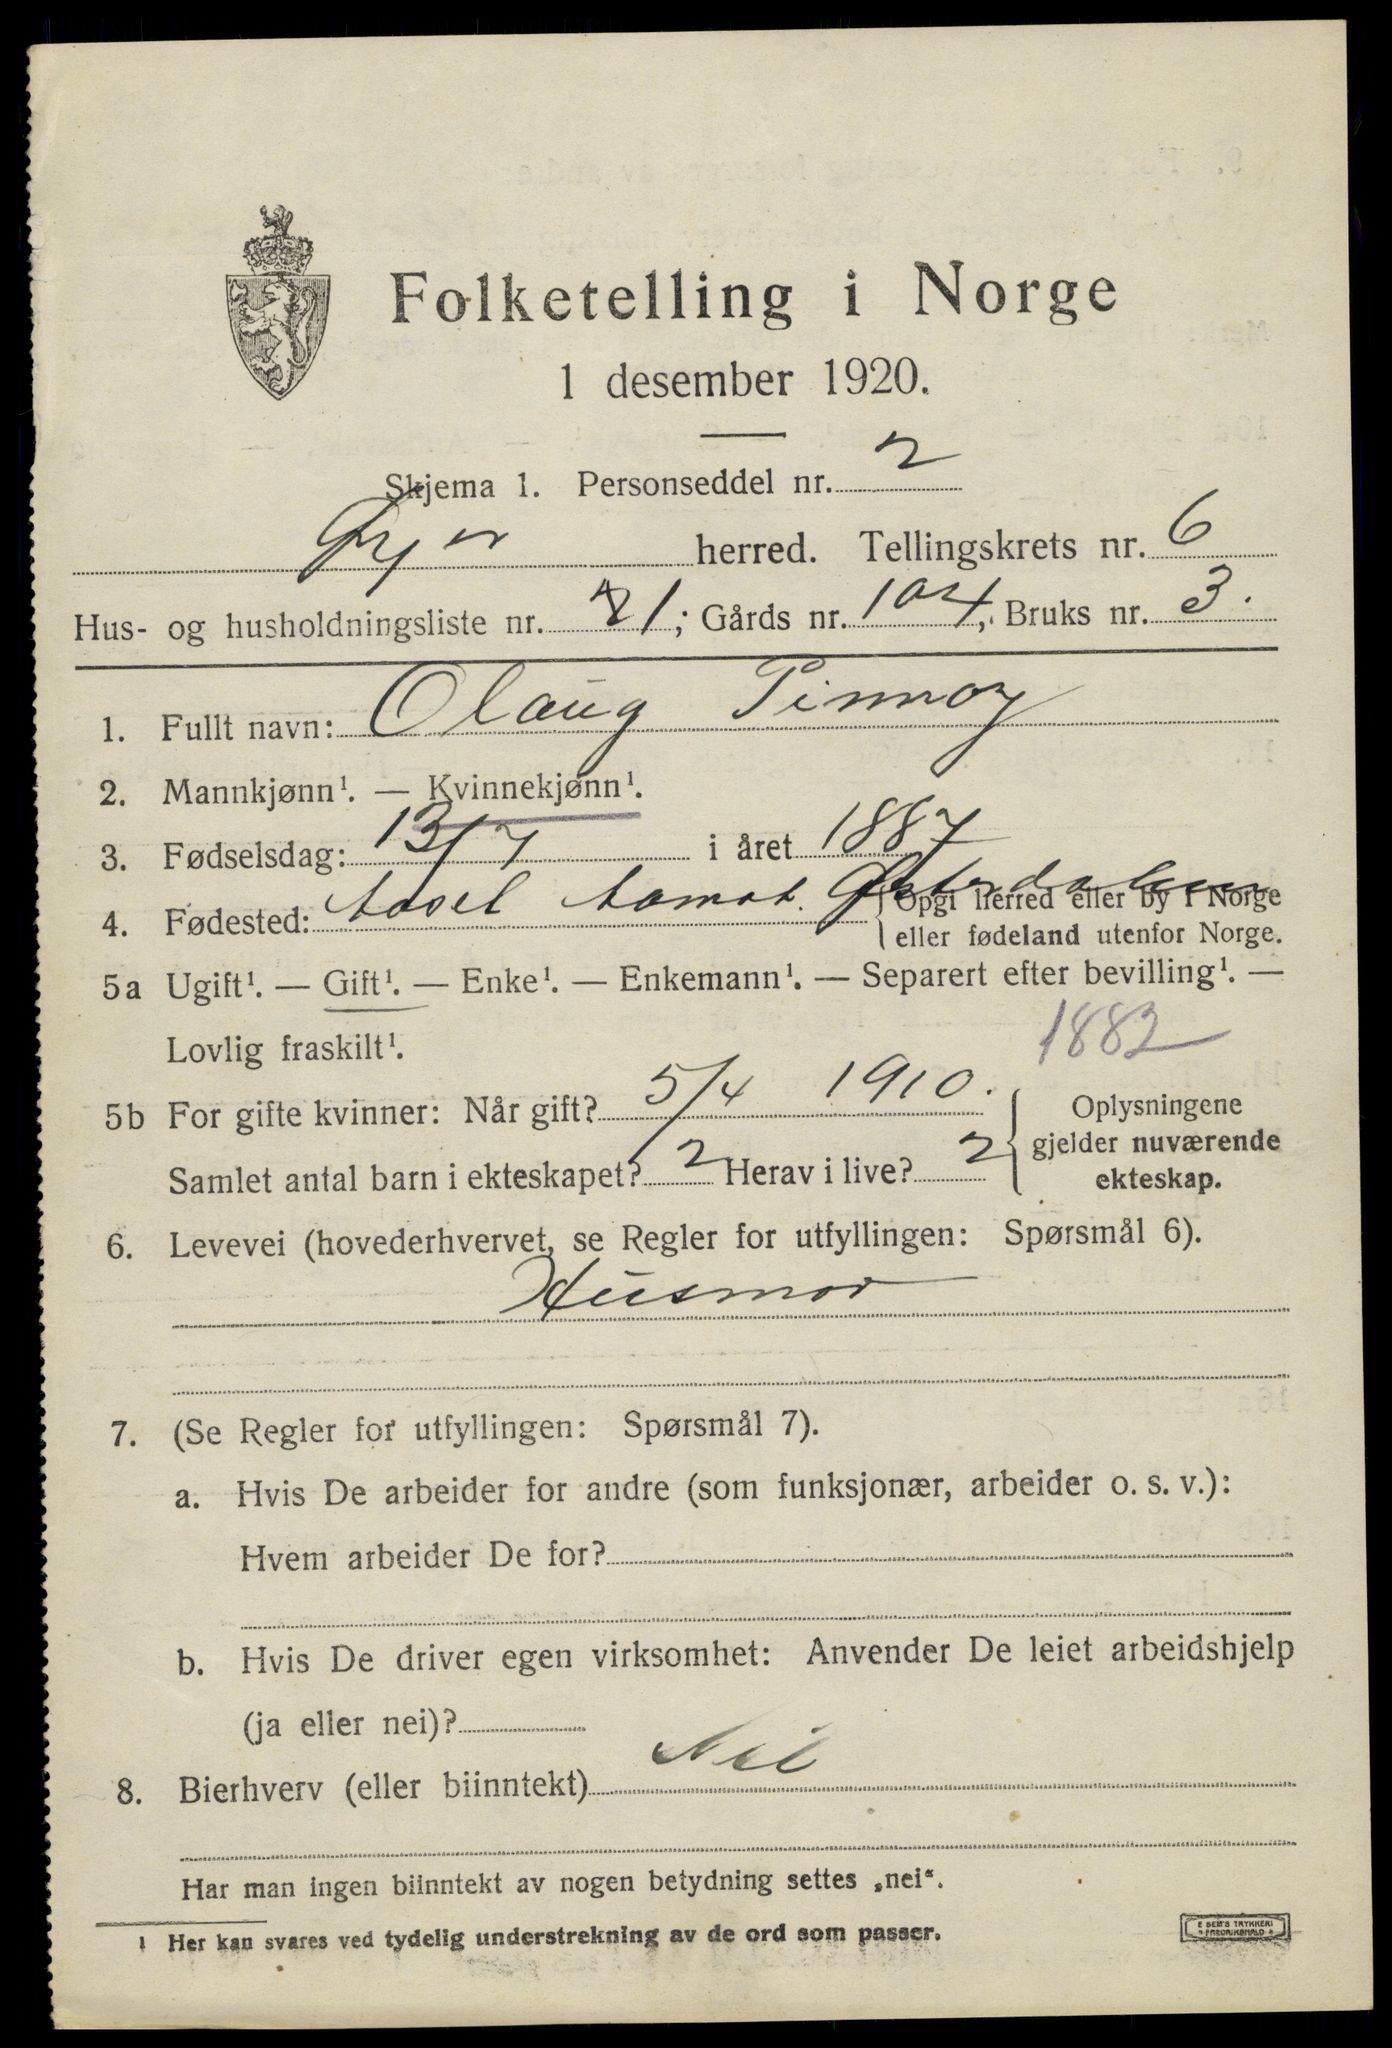 Folketelling i Norge
1 desember 1920.
Skjema 1. Personseddel nr. 2
herred. Tellingskrets nr. 6
Hus- og husholdningsliste nr. 21; Gårds nr. 104, Bruks nr. 3.
1. Fullt navn: Olaug Pinnoy
2. Mannkjønn¹. — Kvinnekjønn¹.
3. Fødselsdag: 13/7 i året 1887
4. Fødested: Aasel Aamot. Østerdalen Opgi herred eller by i Norge
eller fødeland utenfor Norge.
5a Ugift¹. — Gift¹. — Enke¹. — Enkemann¹. — Separert efter bevilling¹. —
Lovlig fraskilt¹. 1882
5b For gifte kvinner: Når gift? 5/4 1910. Oplysningene
gjelder nuværende
Samlet antal barn i ekteskapet? 2 Herav i live? 2 ekteskap.
6. Levevei (hovederhvervet, se Regler for utfyllingen: Spørsmål 6).
Husmor
7. (Se Regler for utfyllingen: Spørsmål 7).
a. Hvis De arbeider for andre (som funksjonær, arbeider o. s. v.):
Hvem arbeider De for?
b. Hvis De driver egen virksomhet: Anvender De leiet arbeidshjelp
(ja eller nei)?
8. Bierhverv (eller biinntekt) Nei
Har man ingen biinntekt av nogen betydning settes „nei“.
1 Her kan svares ved tydelig understrekning av de ord som passer.
E SEM'S TRYKKERI
FREDRIKSHALD